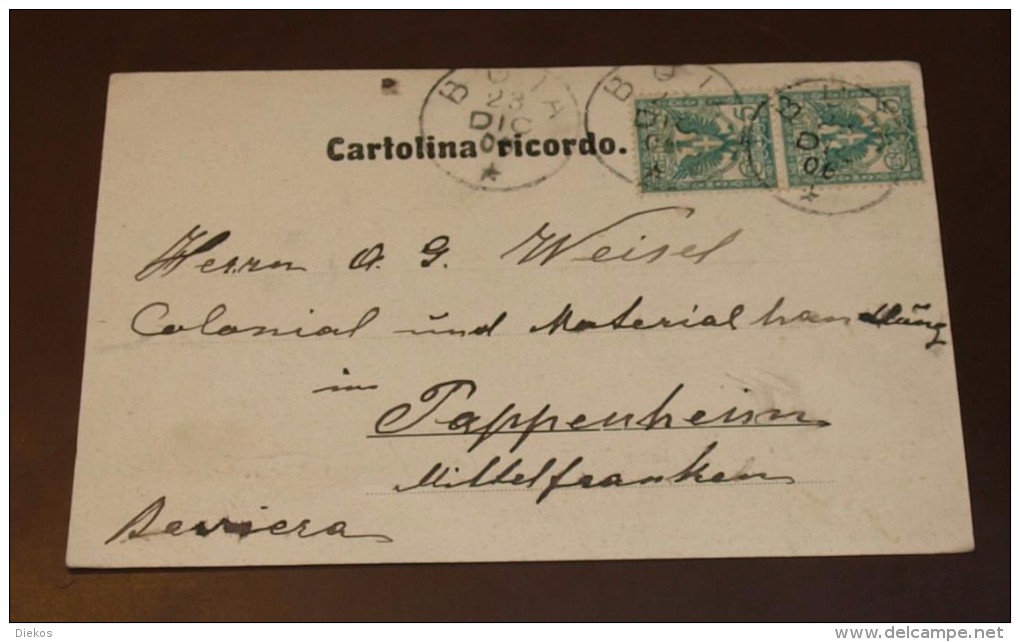 BOIA
23
DIC
BOI
DIC
5
5
DIC
06
Cartolina ricordo.
Herrn A. G. Weisel
Colonial und Materialhandlung
in
Pappenheim
Mittelfranken
Baviera
Diekos
www.delcampe.net